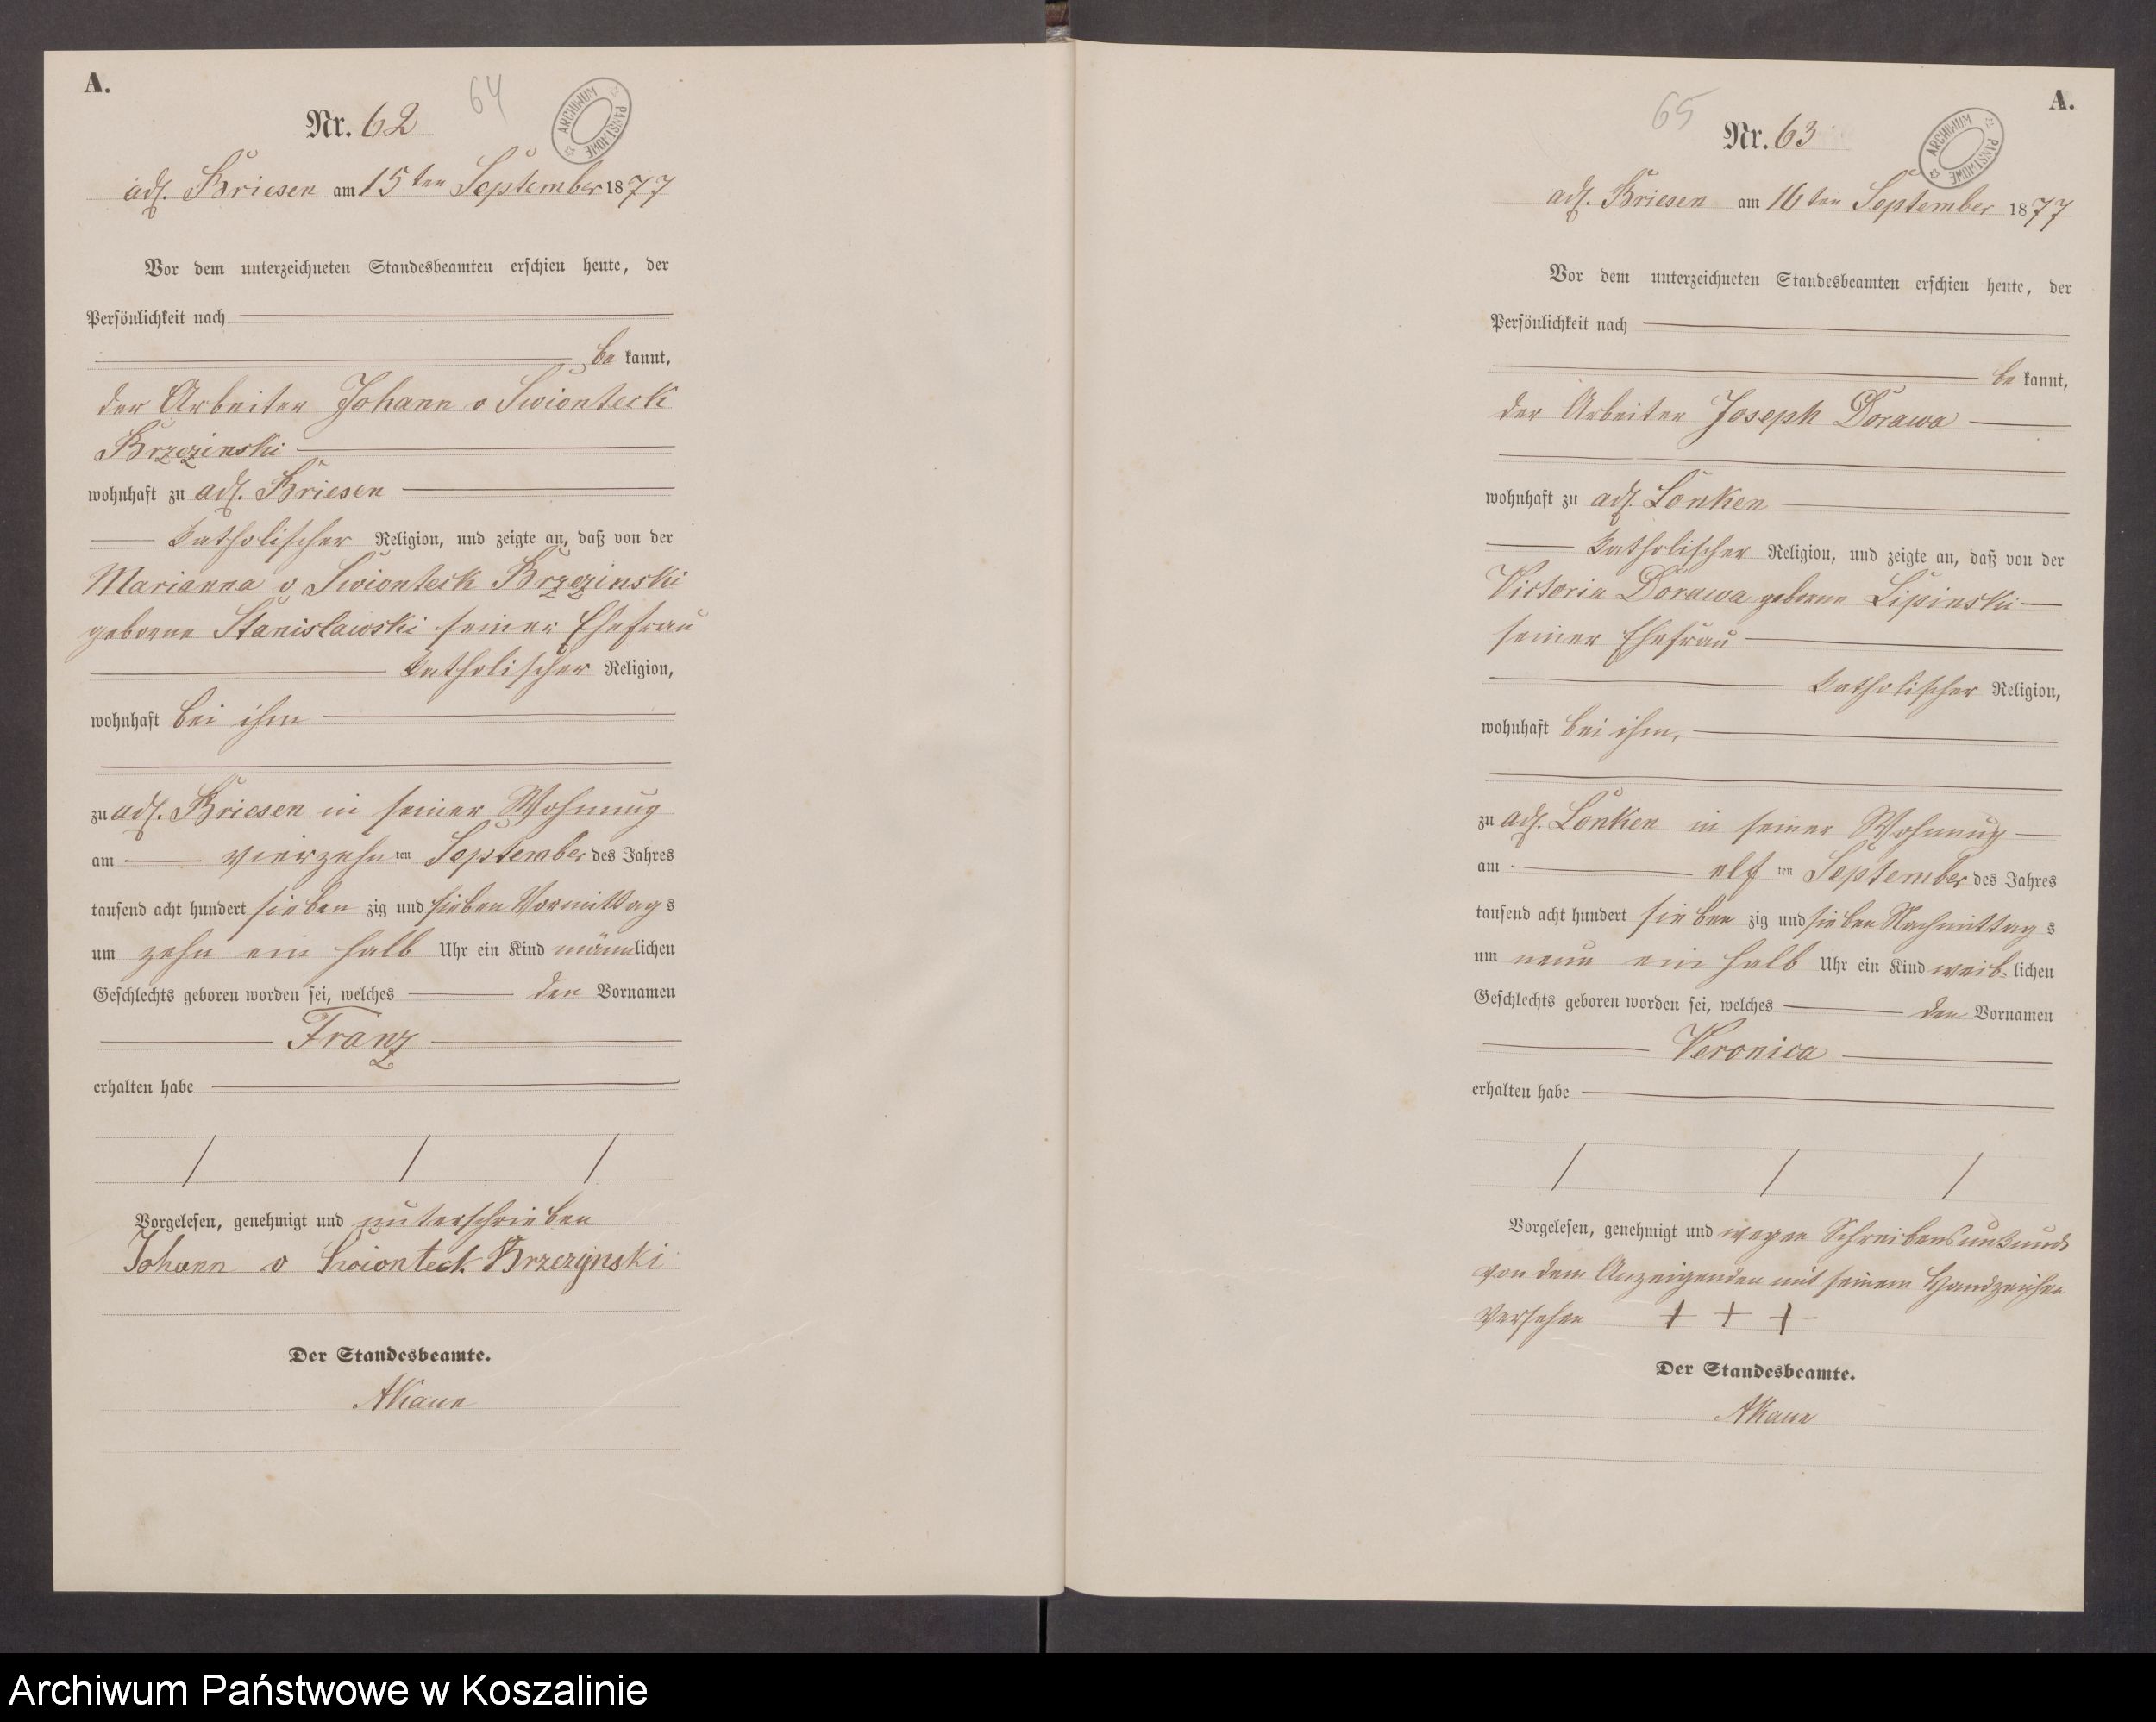 A.
64
Nr. 62
ARCHIWUM PAŃSTWOWE
adl. Briesen am 15ten September 1877
Vor dem unterzeichneten Standesbeamten erschien heute, der
Persönlichkeit nach
be kannt,
der Arbeiter Johann v Swionteck
Brzezinski
wohnhaft zu adl. Briesen
katholischer Religion, und zeigte an, daß von der
Marianna v Swionteck Brzezinski
geborne Stanislawski seiner Ehefrau
katholischer Religion,
wohnhaft bei ihm
zu adl. Briesen in seiner Wohnung
am vierzehn ten September des Jahres
tausend acht hundert sieben zig und sieben Vormittag s
um zehn ein halb Uhr ein Kind männlichen
Geschlechts geboren worden sei, welches den Vornamen
Franz
erhalten habe
Vorgelesen, genehmigt und unterschrieben
Johann v Swionteck Brzezynski
Der Standesbeamte.
AKaun
A.
65
Nr. 63
ARCHIWUM PAŃSTWOWE
adl. Briesen am 16ten September 1877
Vor dem unterzeichneten Standesbeamten erschien heute, der
Persönlichkeit nach
be kannt,
der Arbeiter Joseph Dorawa
wohnhaft zu adl. Lonken
katholischer Religion, und zeigte an, daß von der
Victoria Dorawa geborne Lipinski
seiner Ehefrau
katholischer Religion,
wohnhaft bei ihm,
zu adl. Lonken in seiner Wohnung
am elf ten September des Jahres
tausend acht hundert sieben zig und sieben Nachmittag s
um neun ein halb Uhr ein Kind weib-lichen
Geschlechts geboren worden sei, welches den Vornamen
Veronica
erhalten habe
Vorgelesen, genehmigt und wegen Schreibensunkunde
von dem Anzeigenden mit seinem Handzeichen
versehen + + +
Der Standesbeamte.
AKaun
Archiwum Państwowe w Koszalinie